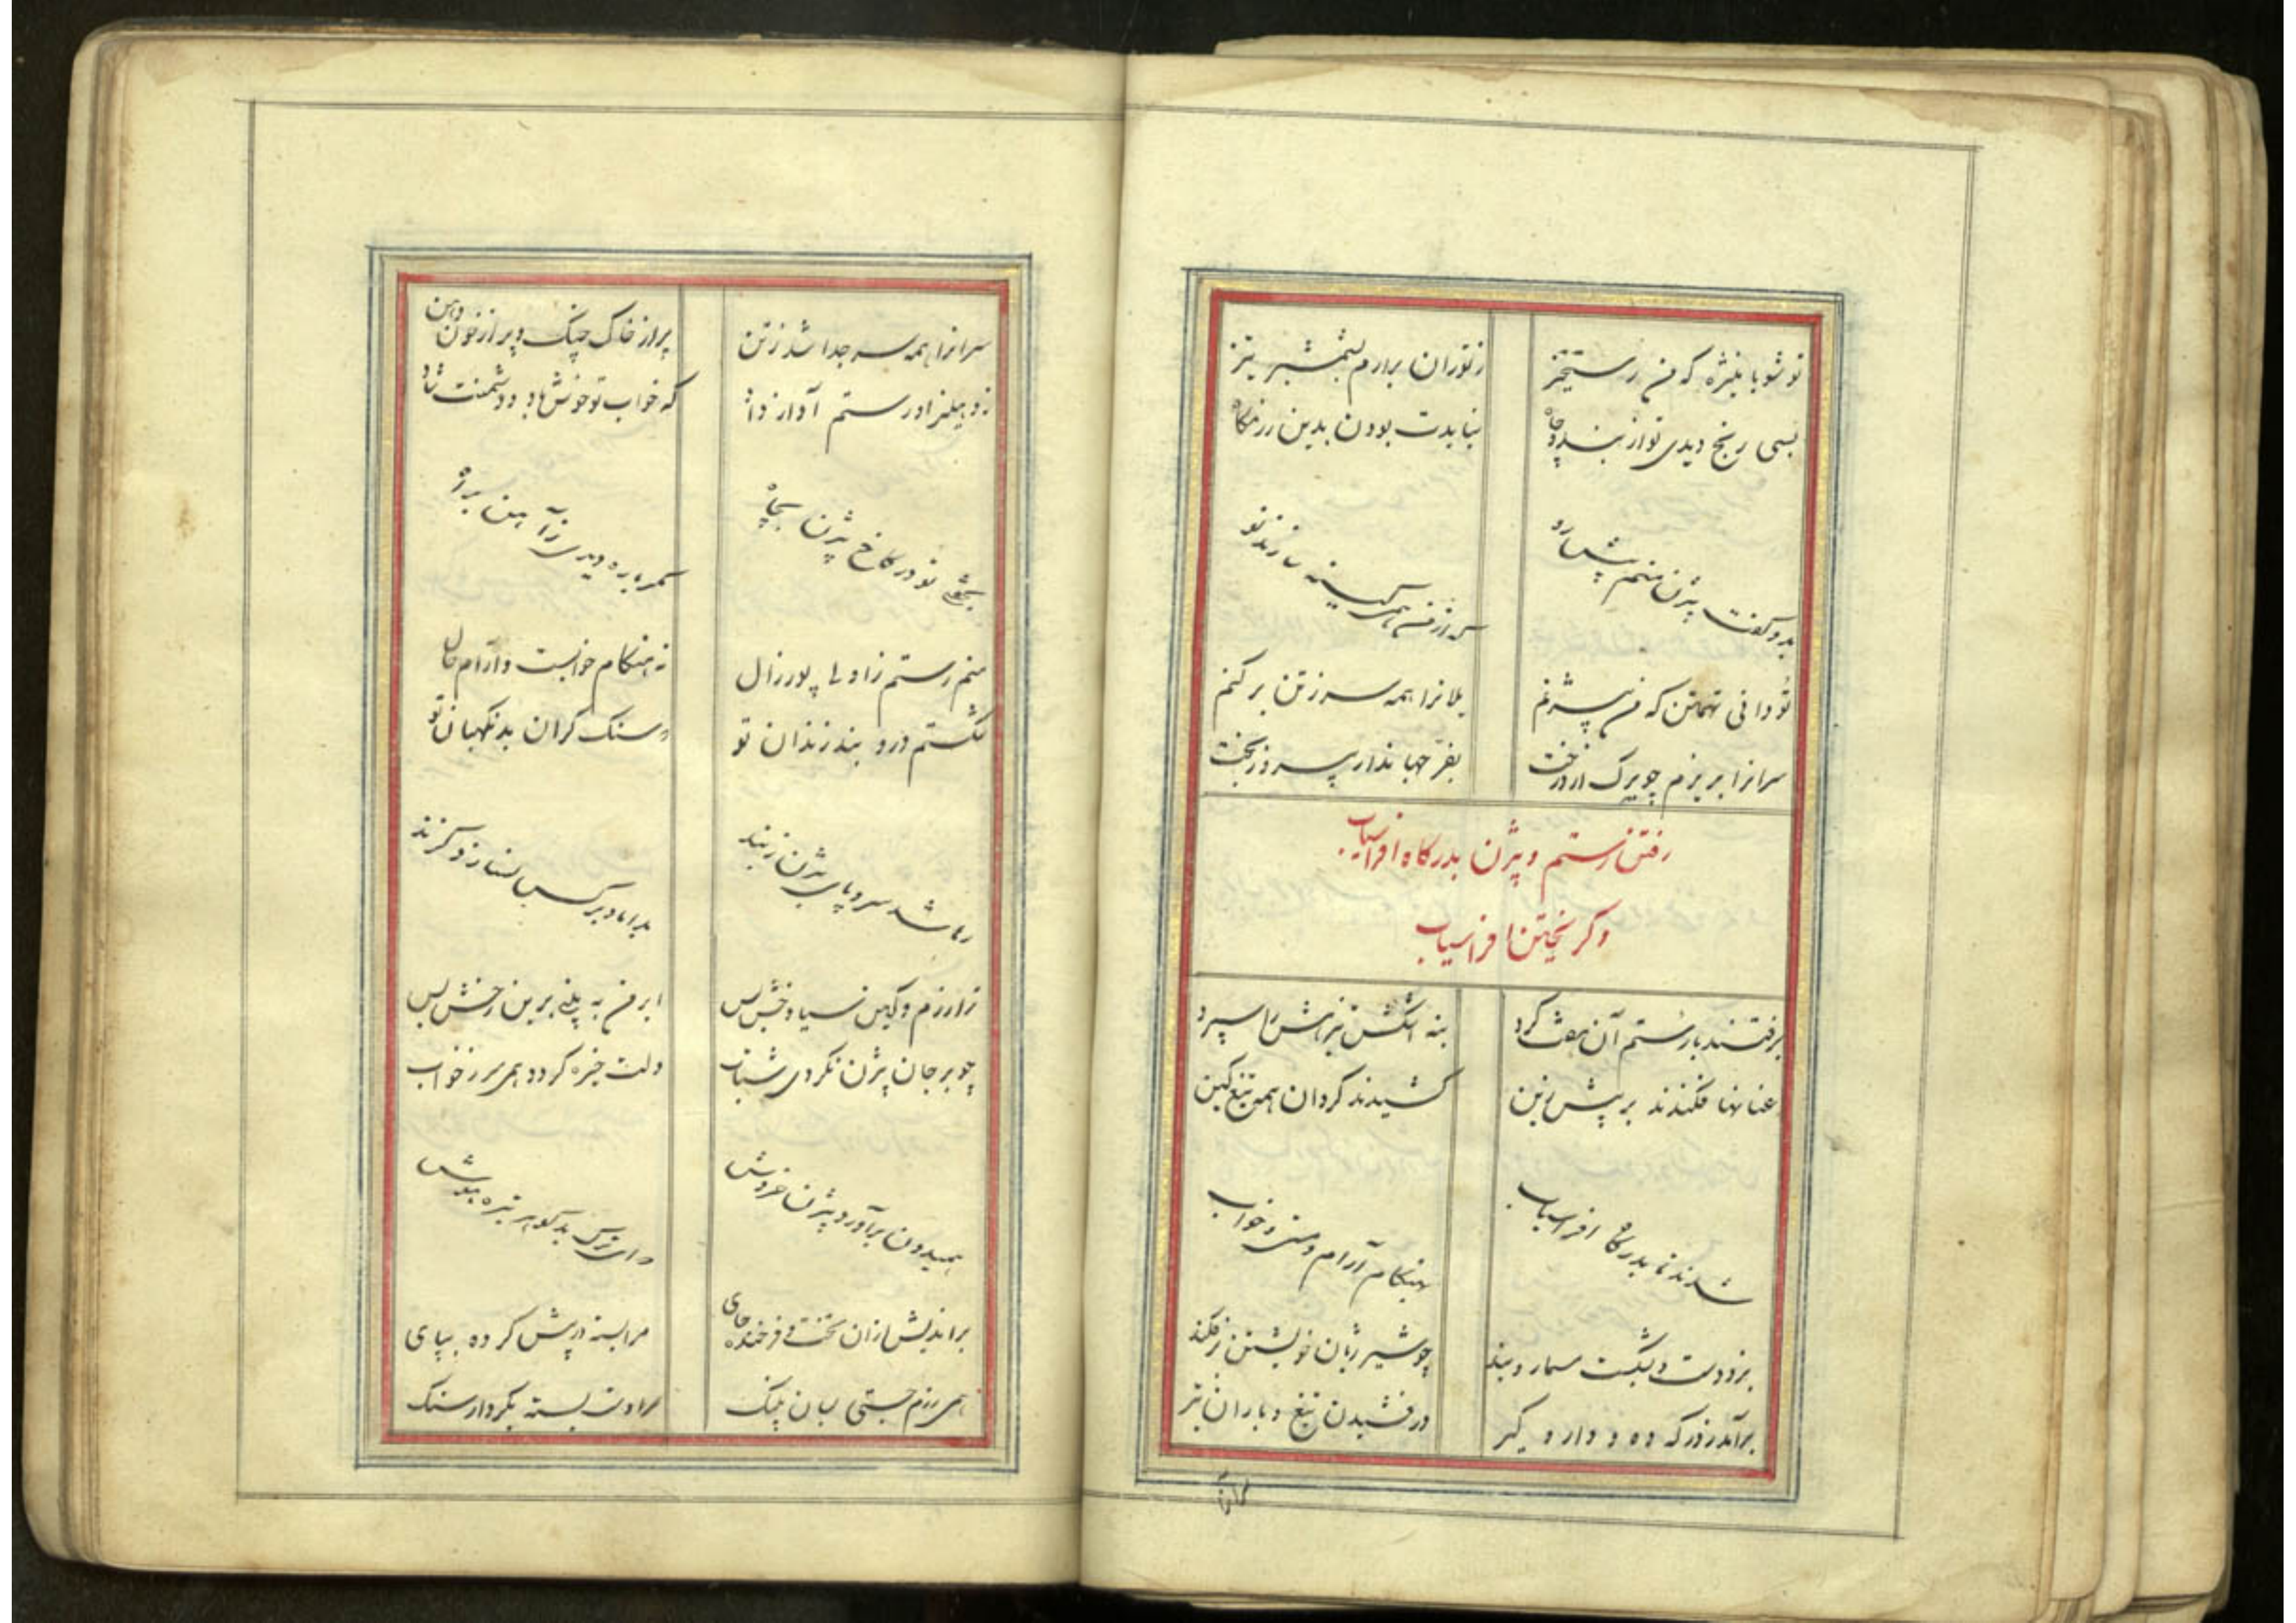 تو شو با منیژه که من رستخیز
ز توران برارم بشمشیر تیز
بسی رنج دیدی تو از بند و چاه
نبایدت بودن بدین رزمگاه
بدو گفت بیژن منم پیش رو
که از من همی کینه سازند نو
تو دانی تهمتن که من بیژنم
یلانرا همه سر ز تن بر کنم
سرانرا بریزم چو برگ از درخت
بفر جهاندار پیروز بخت
رفتن رستم و بیژن بدرگاه افراسیاب
و گریختن افراسیاب
برفتند با رستم آن هفت گرد
بنه اشکش تیزهش را سپرد
عنانها فکندند بر پیش زین
کشیدند گردان همه تیغ کین
شدند تا بدرگاه افراسیاب
بهنگام آرام و مستی و خواب
بزد دست و بشکست مسمار و بند
چو شیر ژیان خویشتن در فکند
برآمد ز هر گه ده و دار و گیر
درفشیدن تیغ و باران تیر
سرانرا
سرانرا همه سر جدا شد ز تن
پر از خاک چنگ و پر از خون دهن
ز دهلیز در رستم آواز داد
که خواب تو خوش باد و دشمنت شاد
بخفتی تو در کاخ بیژن بچاه
مگر باره دیدی ز آهن براه
منم رستم زاولی پور زال
نه هنگام خوابست و آرام و هال
شکستم در و بند زندان تو
در سنگ گران بد نگهبان تو
رها شد سر و پای بیژن ز بند
بداماد بر کس نسازد گزند
ترا رزم و کین سیاوخش بس
ابر من به بر این رخش بس
چو بر جان بیژن نکردی شتاب
دلت خیره گردد همی سر ز خواب
همیدون برآورد بیژن خروش
که ای ترک بدگوهر تیره هوش
براندیش ازان تخت و فرخنده جای
مرا بسته در پیش کرده بپای
همی رزم جستی بسان پلنگ
مرا دست بسته بکردار سنگ